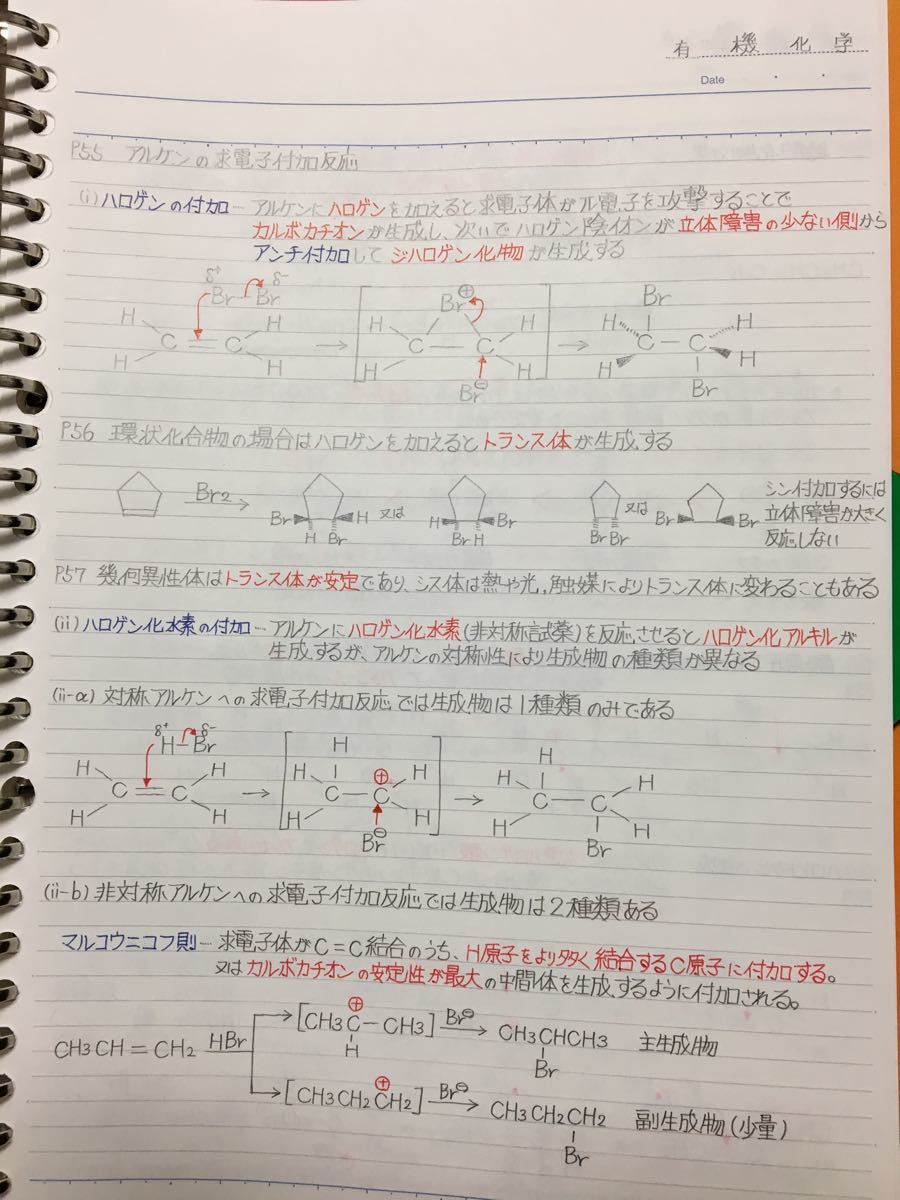 有機化学
Date
P55 アルケンの求電子付加反応
(i) ハロゲンの付加… アルケンにハロゲンを加えると求電子体がπ電子を攻撃することで
カルボカチオンが生成し、次いでハロゲン陰イオンが立体障害の少ない側から
アンチ付加してジハロゲン化物が生成する
δ+ δ-
Br Br Br⊕ Br
H H H H H H
C=C → C C → C-C
H H H H H H
Br⊖ Br
P56 環状化合物の場合はハロゲンを加えるとトランス体が生成する
Br2→ Br H 又は H Br 又は Br Br シン付加するには
H Br Br H Br Br 立体障害が大きく
反応しない
P57 幾何異性体はトランス体が安定であり、シス体は熱や光,触媒によりトランス体に変わることもある
(ii) ハロゲン化水素の付加… アルケンにハロゲン化水素(非対称試薬)を反応させるとハロゲン化アルキルが
生成するが、アルケンの対称性により生成物の種類が異なる
(ii-a) 対称アルケンへの求電子付加反応では生成物は1種類のみである
δ+ δ-
H-Br H H
H H H ⊕ H H H
C=C → C-C → C-C
H H H H H H
Br⊖ Br
(ii-b) 非対称アルケンへの求電子付加反応では生成物は2種類ある
マルコウニコフ則… 求電子体がC=C結合のうち、H原子をより多く結合するC原子に付加する。
又はカルボカチオンの安定性が最大の中間体を生成するように付加される。
⊕
[CH3C-CH3] Br⊖→ CH3CHCH3 主生成物
H Br
CH3CH=CH2 HBr
⊕
[CH3CH2CH2] Br⊖→ CH3CH2CH2 副生成物(少量)
Br